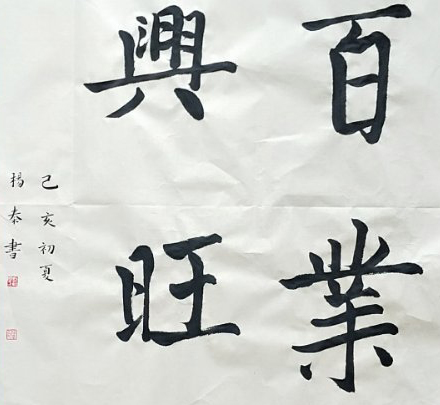 百業
興旺
己亥初夏
楊奉書